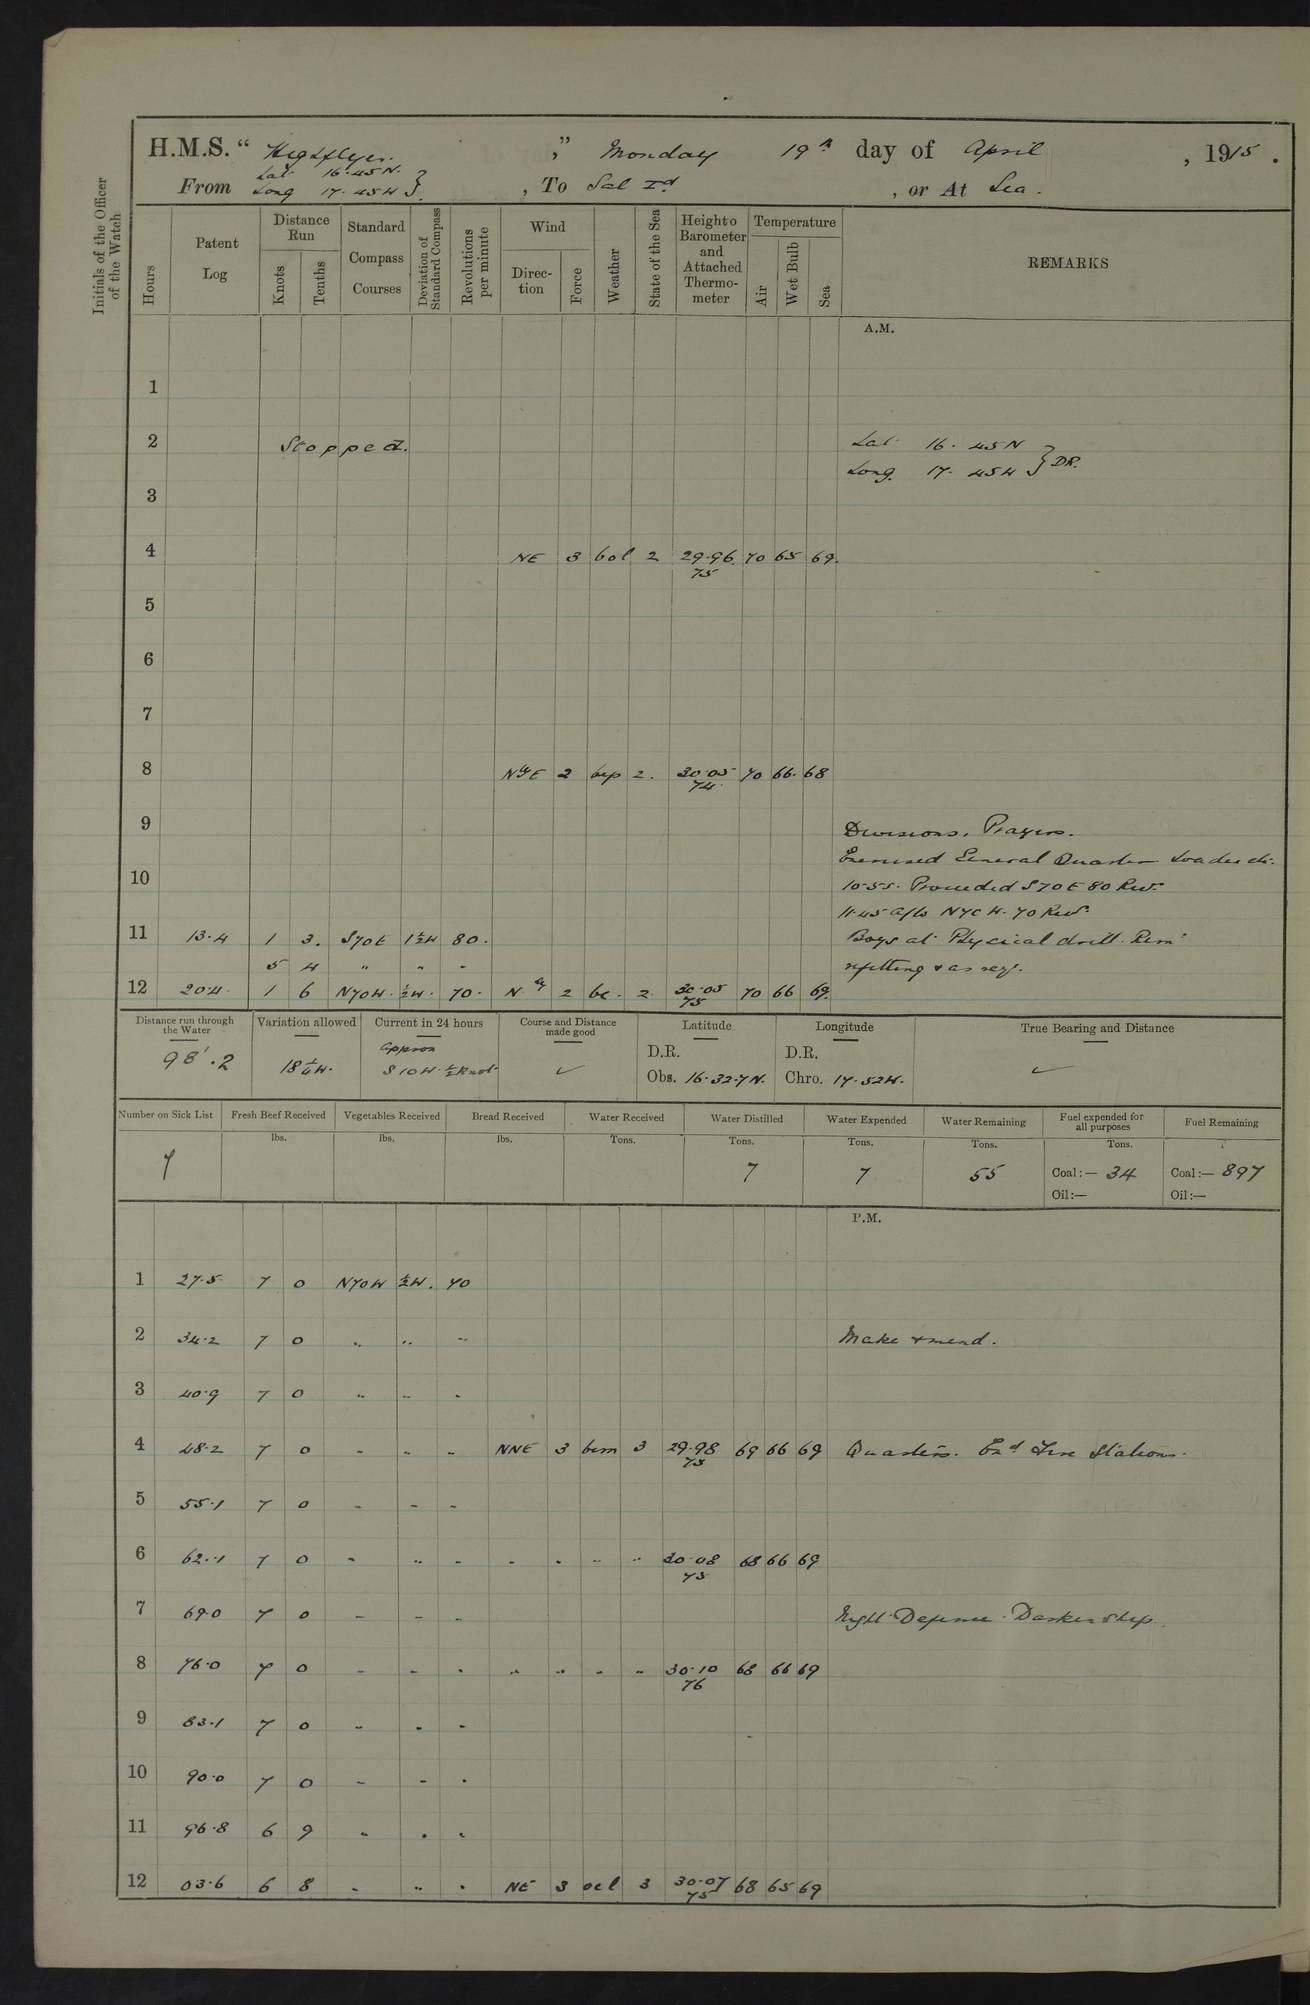 H.M.S. " Highflyer. , " Monday 19th day of April , 1915 .
From Lat 16.45 N. Long 17.45 W } , To Sal Id , or At Sea .
Initials of the Officer of the Watch
Hours
Patent Log
Distance Run
Knots
Tenths
Standard Compass Courses
Deviation of Standard Compass
Revolutions per minute
Wind
Direction
Force
Weather
State of the Sea
Height o Barometer and Attached Thermometer
Temperature
Air
Wet Bulb
Sea
REMARKS
A.M.
1
2 Stopped. Lat 16. 45 N
Long. 17. 45 W } DR.
3
4 NE 3 bcl 2 29.96 70 65 69.
75
5
6
7
8 NbyE 2 bcp 2. 30.05 70 66. 68
74.
9 Divisions. Prayers.
Exercised General Quarters Loader etc.
10 10.55. Proceeded S70E 80 Revs.
11.45 a/c to N70W. 70 Revs.
11 13.4 1 3. S70E 1½W 80. Boys at Physical drill. Remr
5 4 " " " refitting & as req.
12 20.4. 1 6 N70W. ½W. 70. N. Ely 2 bc. 2 30.05 70 66 69.
75
Distance run through the Water
Variation allowed
Current in 24 hours
Course and Distance made good
Latitude
Longitude
True Bearing and Distance
98'.2
18¼W.
Approx S10W. ½ Knot.
D.R.
Obs. 16.32.7 N.
D.R.
Chro. 17.52 W.
Number on Sick List
Fresh Beef Received
Vegetables Received
Bread Received
Water Received
Water Distilled
Water Expended
Water Remaining
Fuel expended for all purposes
Fuel Remaining
lbs. lbs. lbs. Tons. Tons. Tons. Tons. Tons.
7 7 7 55 Coal:— 34 Coal:— 897
Oil:— Oil:—
P.M.
1 27.5 7 0 N70W ½W. 70
2 34.2 7 0 " " " Make & mend.
3 40.9 7 0 " " "
4 48.2 7 0 " " " NNE 3 bcm 3 29.98 69 66 69 Quarters. Exd Fire Stations.
75
5 55.1 7 0 " " "
6 62.1 7 0 " " " " " " " 30.08 68 66 69
75
7 69.0 7 0 " " " Night Defence. Darken Ship.
8 76.0 7 0 " " " " " " " 30.10 68 66 69
76
9 83.1 7 0 " " "
10 90.0 7 0 " " "
11 96.8 6 9 " " "
12 03.6 6 8 " " " NE 3 ocl 3 30.07 68 65 69
75